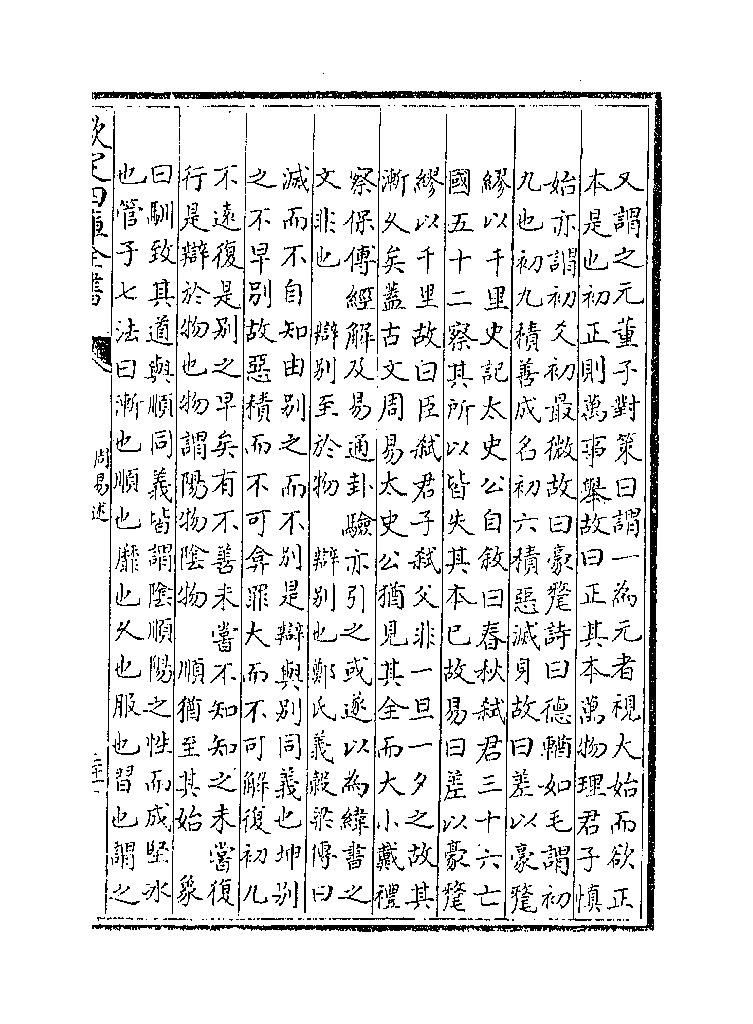 又謂之元董子對策曰謂一為元者視大始而欲正
本是也初正則萬事舉故曰正其本萬物理君子慎
始亦謂初爻初最微故曰豪氂詩曰德輶如毛謂初
九也初九積善成名初六積惡滅身故曰差以豪氂
繆以千里史記太史公自敘曰春秋弒君三十六亡
國五十二察其所以皆失其本已故易曰差以豪氂
繆以千里故曰臣弒君子弒父非一旦一夕之故其
漸久矣蓋古文周易太史公猶見其全而大小戴禮
察保傅經解及易通卦驗亦引之或遂以為緯書之
文非也　辯別至於物　辯別也鄭氏義穀梁傳曰
滅而不自知由別之而不別是辯與別同義也坤別
之不早別故惡積而不可弇罪大而不可解復初九
不遠復是別之早矣有不善未嘗不知知之未嘗復
行是辯於物也物謂陽物陰物　順猶至其始　象
曰馴致其道與順同義皆謂陰順陽之性而成堅冰
也管子七法曰漸也順也靡也久也服也習也謂之
欽定四庫全書
周易述